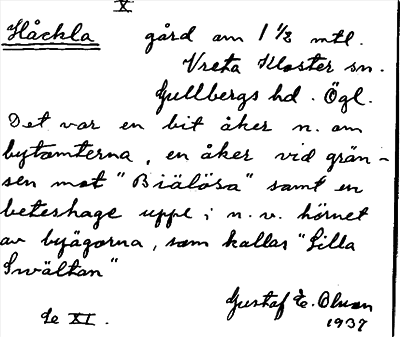 X
Håckla gård om 1 1/2 mtl.
Vreta Kloster sn.
Gullbergs hd. Ögl.
Det var en bit åker n. om
bytomterna, en åker vid grän-
sen mot "Biälösa" samt en
beteshage uppe i n. v. hörnet
av byägorna, som kallas "Lilla
Swältan"
Se XI.
Gustaf E. Olsson
1937